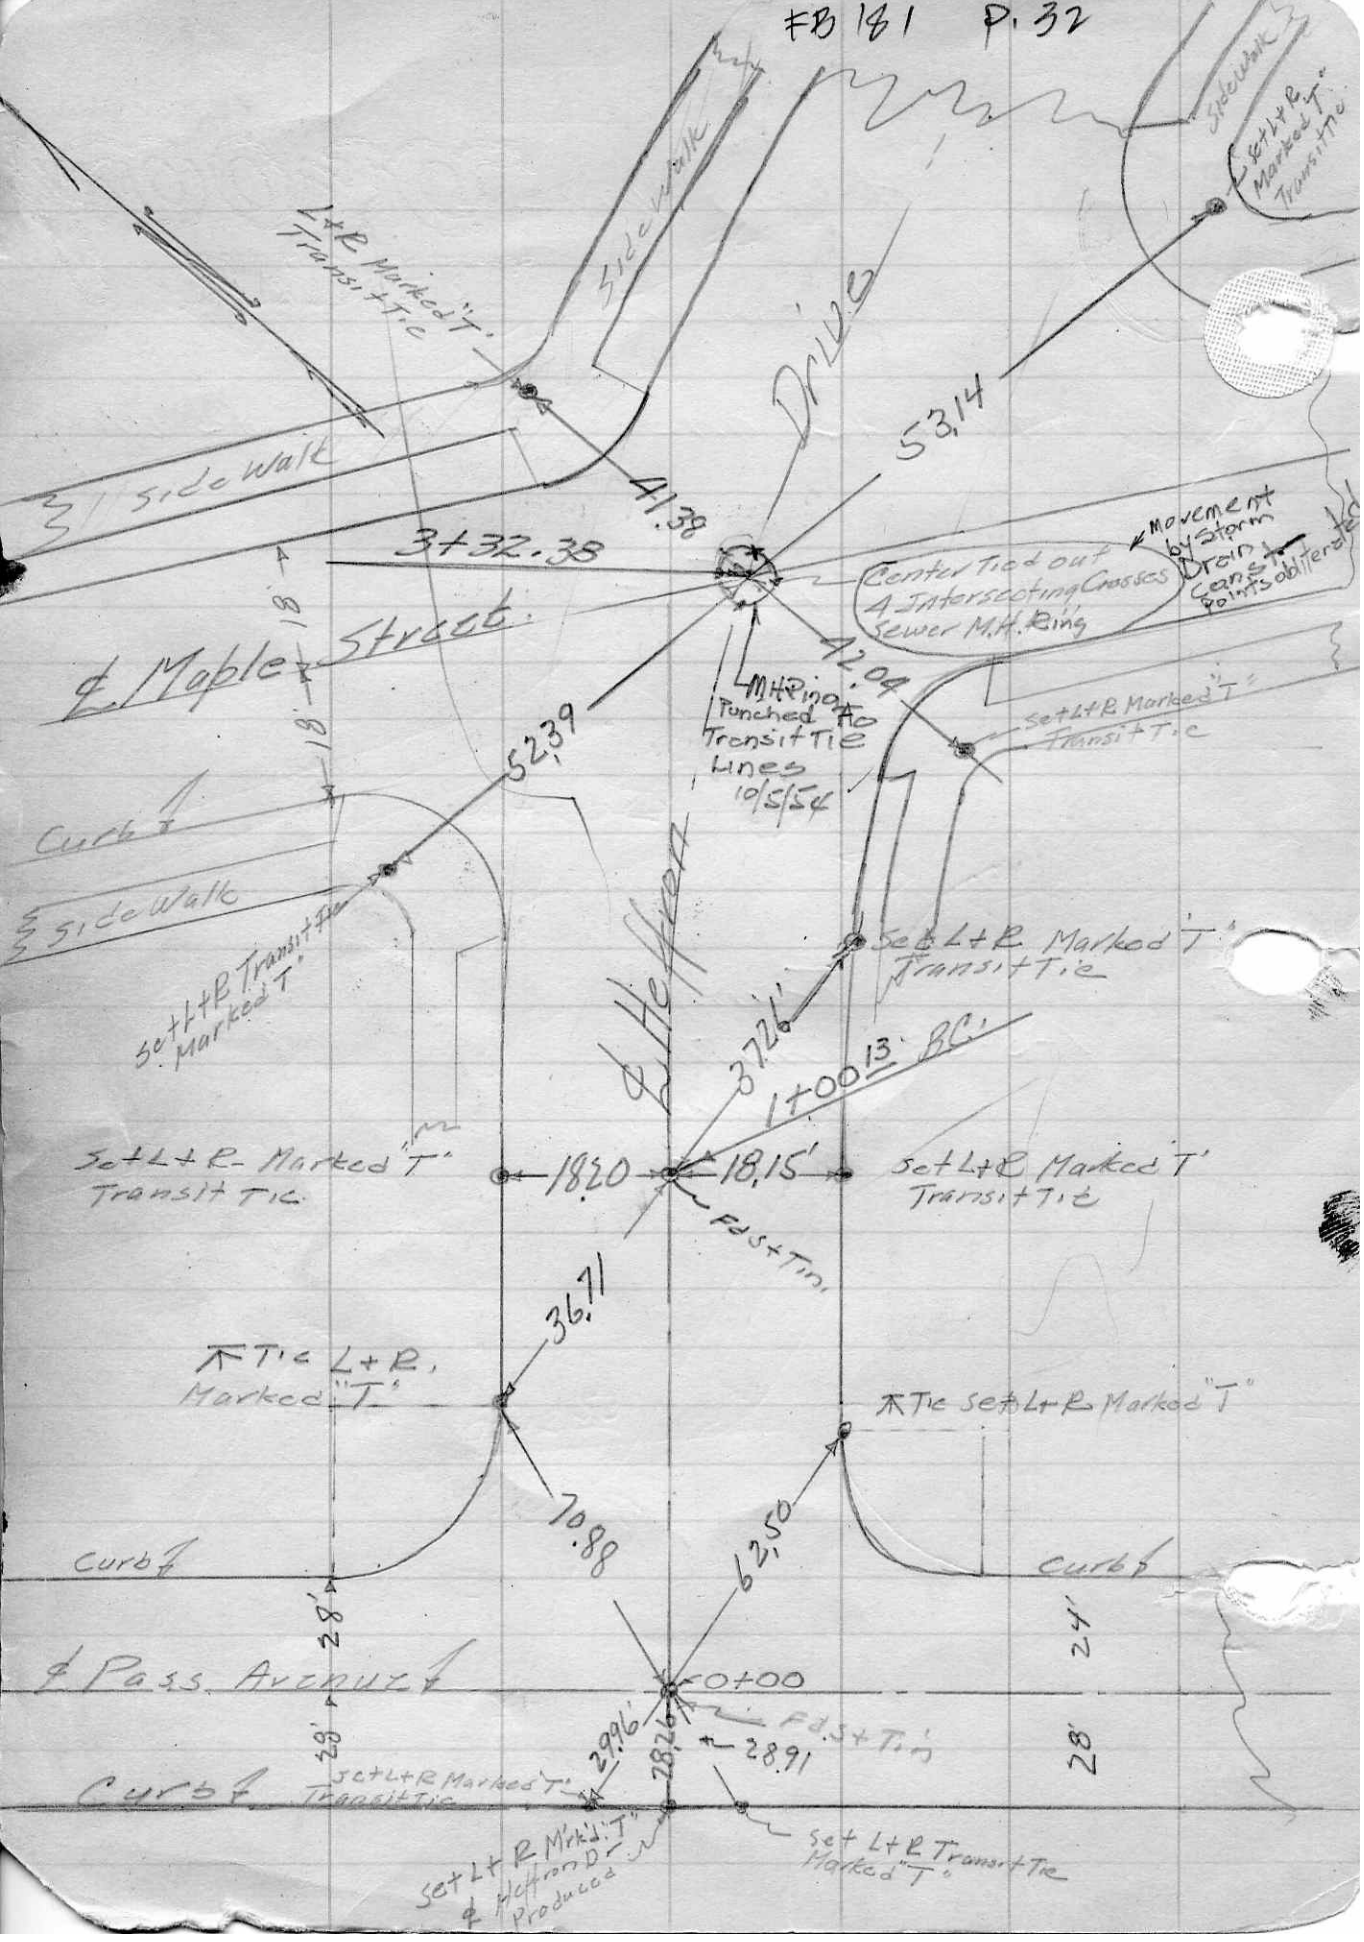 FB 181 P. 32
Sidewalk
Set L+R
Marked "T"
Transit Tie
Sidewalk
L+R Marked "T"
Transit Tie
Drive
53.14
Sidewalk
41.38
3+32.38
Movement
by Storm
Drain
Const.
Points obliterated
Center Tied out
4 Intersecting Crosses
Sewer M.H. Ring
18'
℄ Maple Street
42.04
MH Ring
Punched to
Transit Tie
Lines
10/5/54
Set L+R Marked "T"
Transit Tie
18'
52.39
Curb
Sidewalk
Set L+R Transit Tie
Marked "T"
℄ Heffron
Set L+R Marked "T"
Transit Tie
37.26'
1+00.13 B.C.
Set L+R Marked "T"
Transit Tie.
18.20
18.15'
Set L+R Marked "T"
Transit Tie
Fd. S+Tin.
36.71
Tie L+R.
Marked "T"
Tie Set L+R Marked "T"
70.88
62.50
Curb
Curb
28'
24'
℄ Pass Avenue
0+00
Fd. S+Tin
28'
29.96'
28.26'
28.91
28'
Curb
Set L+R Marked "T"
Transit Tie
Set L+R Mrk'd. "T"
℄ Heffron Dr
Produced
Set L+R Transit Tie
Marked "T"